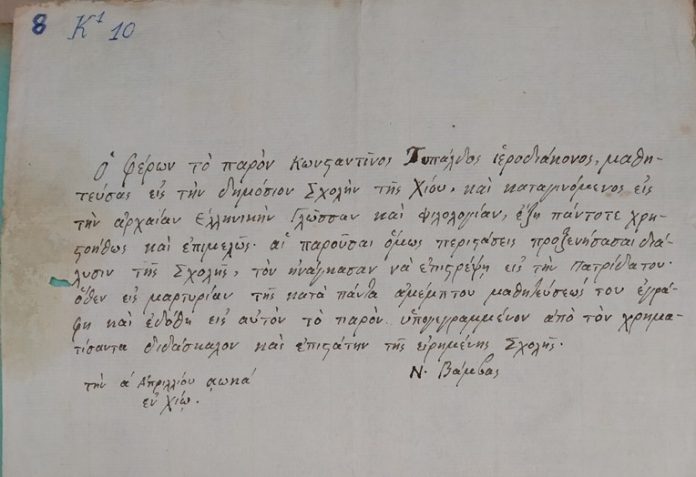 8 Κ¹ 10
Ὁ φέρων τὸ παρὸν Κωνσταντῖνος Τυπάλδος ἱεροδιάκονος, μαθη-
τεύσας εἰς τὴν δημόσιον Σχολὴν τῆς Χίου, καὶ καταγινόμενος εἰς
τὴν ἀρχαίαν Ἑλληνικὴν Γλῶσσαν καὶ Φιλολογίαν, ἔζη πάντοτε χρη-
στοήθως καὶ ἐπιμελῶς. αἱ παροῦσαι ὅμως περιστάσεις προξενήσασαι διά-
λυσιν τῆς Σχολῆς, τὸν ἠνάγκασαν νὰ ἐπιστρέψῃ εἰς τὴν Πατρίδα του.
ὅθεν εἰς μαρτυρίαν τῆς κατὰ πάντα ἀμέμπτου μαθητεύσεώς του ἐγρά-
φη καὶ ἐδόθη εἰς αὐτὸν τὸ παρὸν ὑπογεγραμμένον ἀπὸ τὸν χρημα-
τίσαντα διδάσκαλον καὶ ἐπιστάτην τῆς εἰρημένης Σχολῆς.
τὴν ά Ἀπριλλίου αωκά
ἐν Χίῳ.
Ν. Βάμβας